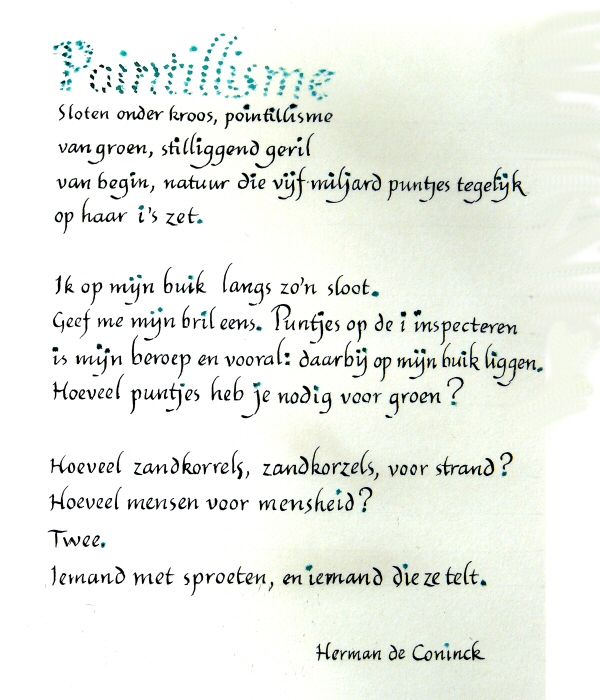 Pointillisme
Sloten onder kroos, pointillisme
van groen, stilliggend geril
van begin, natuur die vijf miljard puntjes tegelijk
op haar i's zet.
Ik op mijn buik langs zo'n sloot.
Geef me mijn bril eens. Puntjes op de i inspecteren
is mijn beroep en vooral: daarbij op mijn buik liggen.
Hoeveel puntjes heb je nodig voor groen?
Hoeveel zandkorrels, zandkorzels, voor strand?
Hoeveel mensen voor mensheid?
Twee.
Iemand met sproeten, en iemand die ze telt.
Herman de Coninck